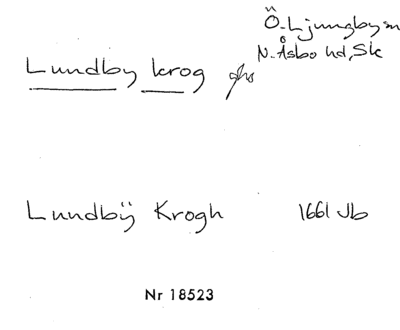 Ö. Ljungby sn
N. Åsbo hd, Sk
Lundby krog
Lundbÿ Krogh 1661 Jb
Nr 18523